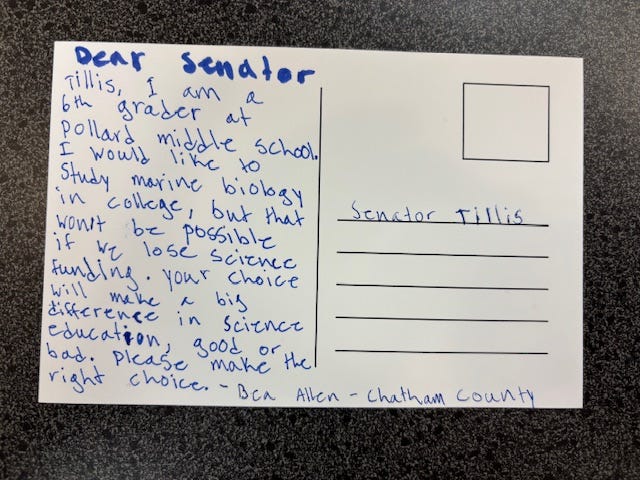 Dear Senator
Tillis, I am a
6th grader at
Pollard middle school.
I would like to
Study marine biology
in college, but that
won't be possible
if we lose science
funding. your choice
will make a big
difference in science
education, good or
bad. please make the
right choice. - Ben Allen - Chatham County
Senator Tillis